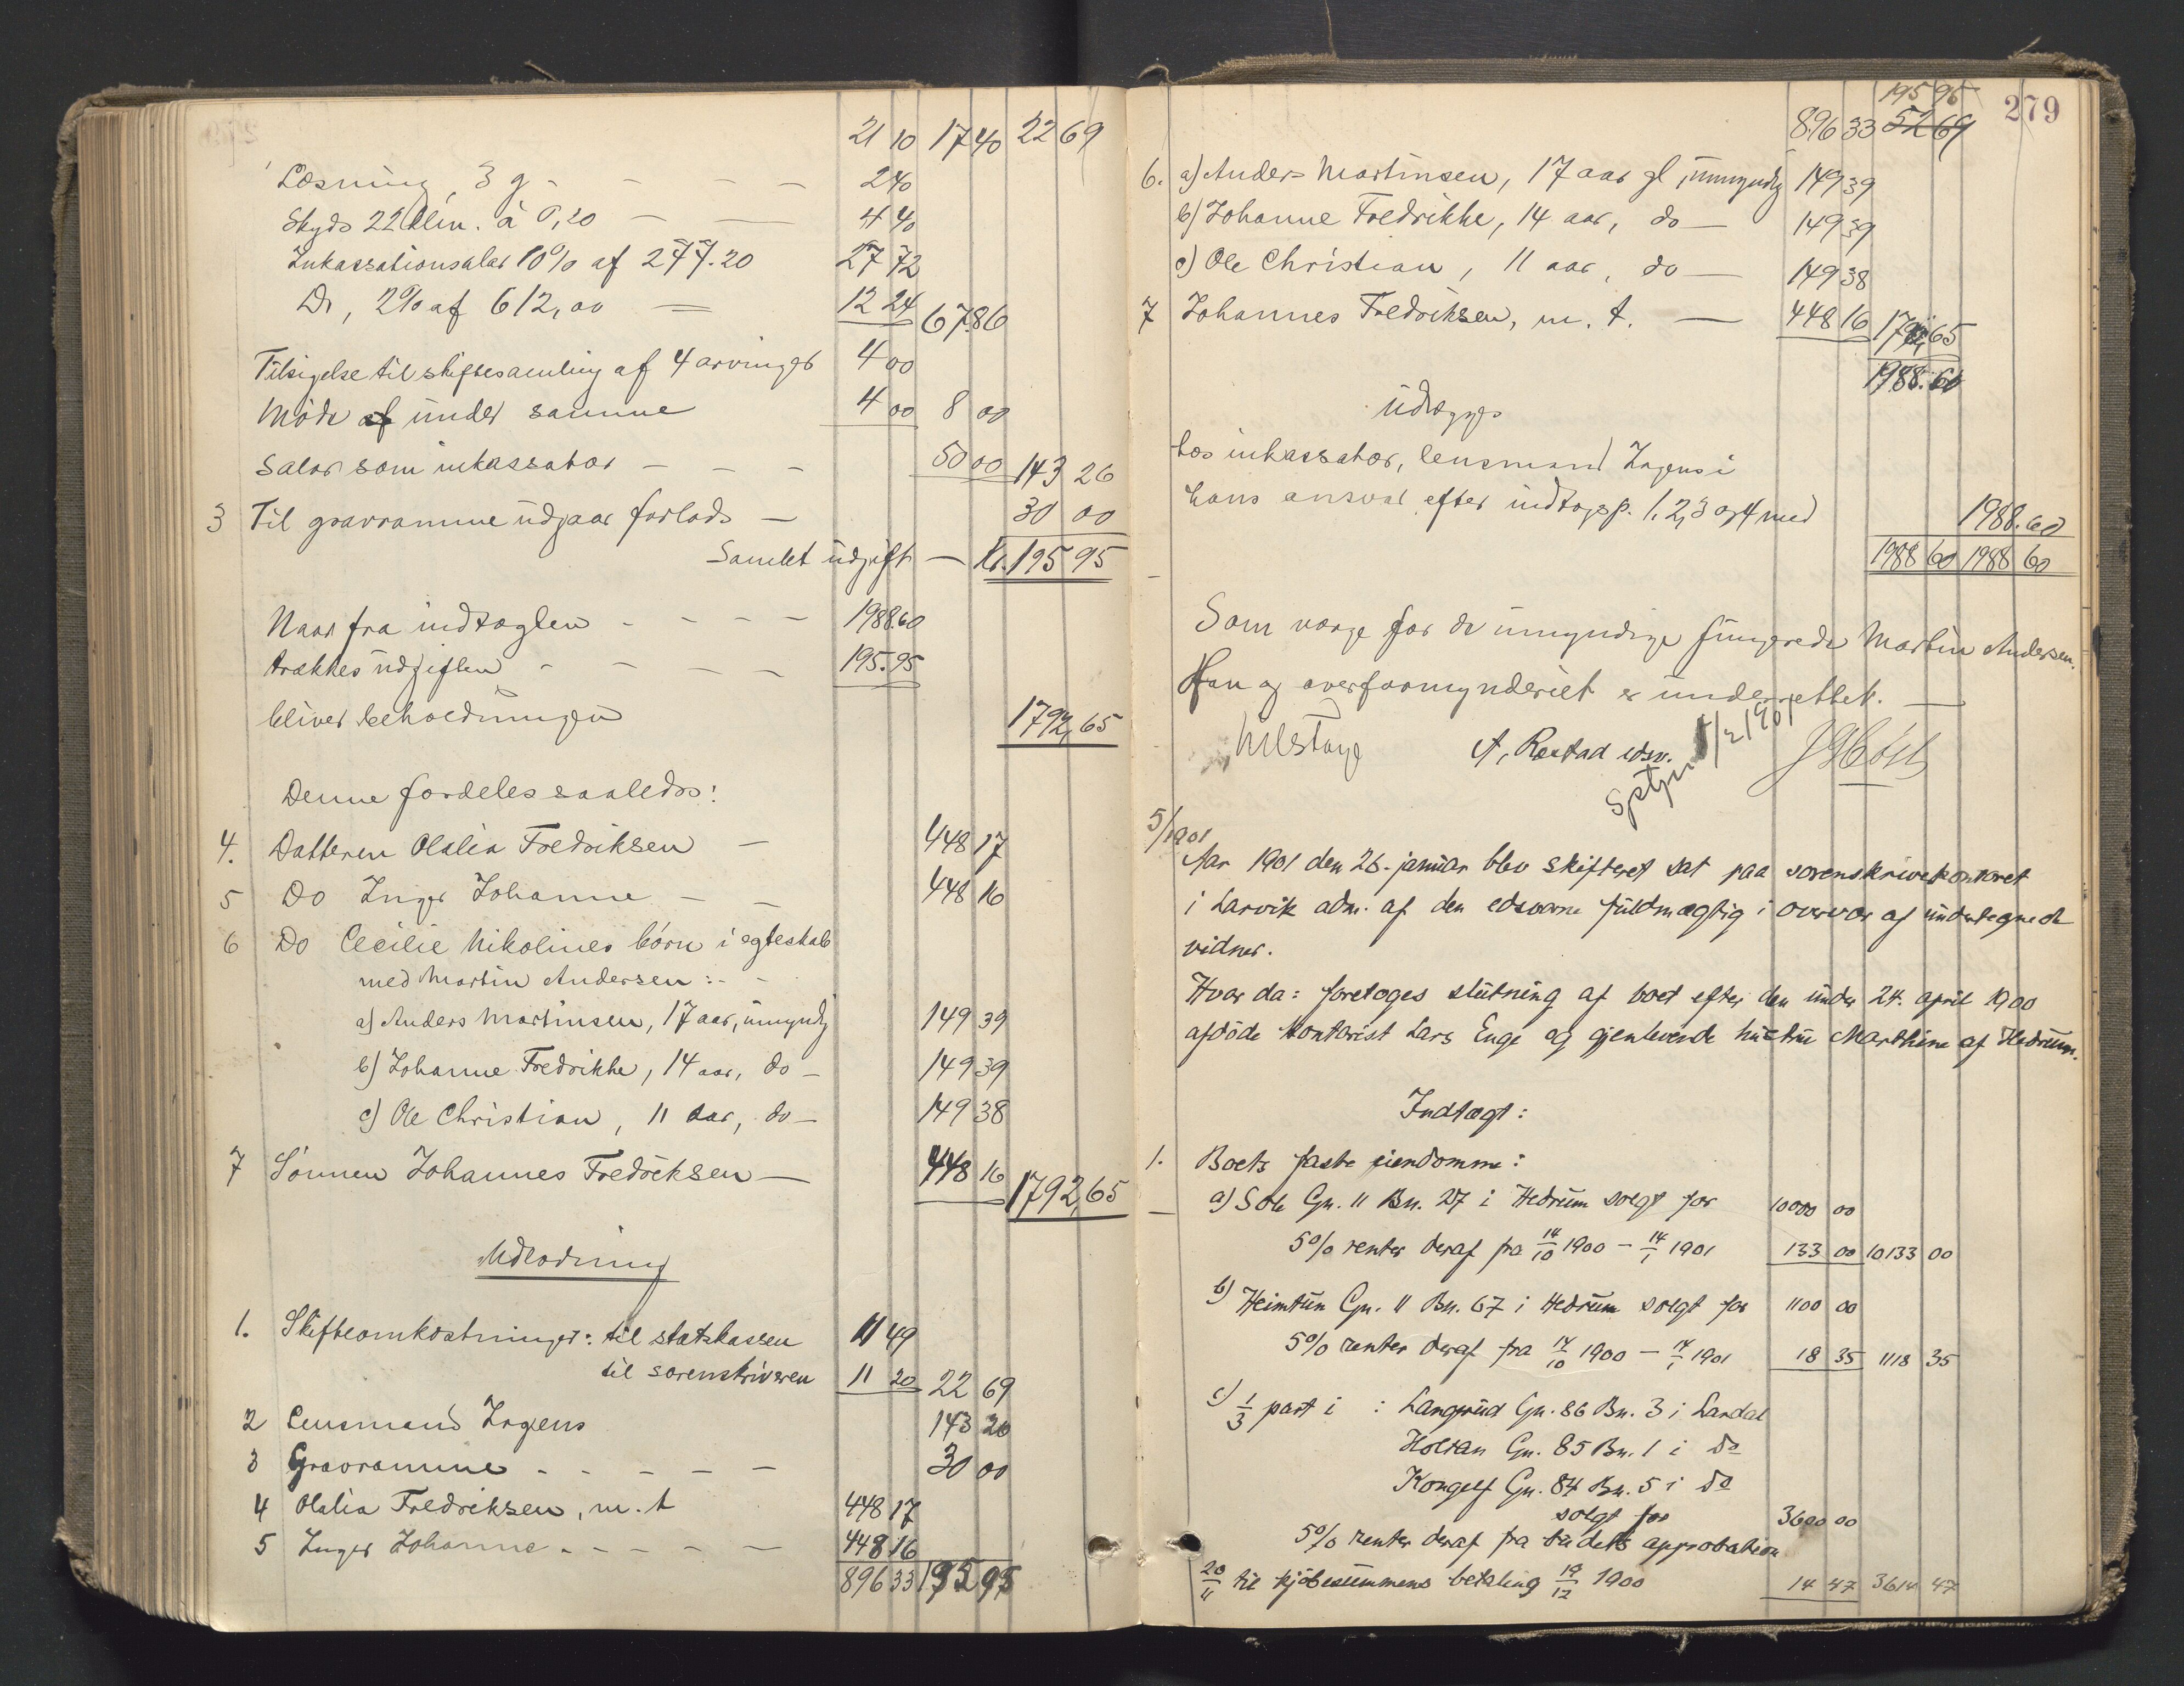 21 10 17 40 22 69
Læsning, 3 g - - - - 2 40
Skyds 22 klm. à 0,20 — — 4 40
Inkassationsalær 10% af 277.20 27 72
Do, 2% af 612,00 — 12 24 67 86
Tilsigelse til skiftesamling af 4 arvinger 4 00
Møde under samme 4 00 8 00
Salær som inkassator - - - 50 00 143 26
3 Til gravramme udgaar forlods — 30 00
Samlet udgift — Kr. 195 95
Naar fra indtægten - - - - 1988.60
trækkes udgiften - - - - 195.95
bliver beholdningen 1792,65
Denne fordeles saaledes:
4. Datteren Olalia Fredriksen — 448 17
5 Do Inger Johanne - - 448 16
6 Do Cecilie Nikolines börn i egteskab
med Martin Andersen: - -
a) Anders Martinsen, 17 aar, umyndig 149 39
b) Johanne Fredrikke, 14 aar, do — 149 39
c) Ole Christian, 11 aar, do — 149 38
7 Sönnen Johannes Fredriksen — 448 16 1792,65
Udlodning
1. Skifteomkostninger: til statskassen 11 49
til sorenskriveren 11 20 22 69
2 Lensmand Zagens 143 26
3 Gravramme - - - - — 30 00
4 Olalia Fredriksen, m. t 448 17
5 Inger Johanne - - - - — 448 16
896 33 195 95
279
195 95
896 33 52 69
6. a) Anders Martinsen, 17 aar gl, umyndig 149 39
b) Johanne Fredrikke, 14 aar, do — 149 39
c) Ole Christian, 11 aar, do — 149 38
7 Johannes Fredriksen, m. t. — 448 16 1792,65
1988.60
Udlægges
hos inkassator, lensmand Zagens i
hans ansvar efter indtægsp. 1, 2, 3 og 4 med 1988.60
1988 60 1988 60
Som værge for de umyndige fungerede Martin Andersen.
Han og overformynderiet er underrettet. —
A, Røstad edsv.
5/1901
Aar 1901 den 26. januar blev skifteret sat paa sorenskriverkontoret
i Larvik adm. af den edsvorne fuldmægtig i overvær af undertegnede
vidner.
Hvor da: foretoges slutning af boet efter den under 24. april 1900
afdöde kontorist Lars Enge og gjenlevende hustru Marthine af Hedrum.
Indtægt:
1. Boets faste eiendomme:
a) Sole Gn. 11 Bn. 27 i Hedrum solgt for 10000 00
5% renter deraf fra 14/10 1900 - 14/1 1901 133 00 10133 00
b) Heimtun Gn. 11 Bn. 67 i Hedrum solgt for 1100 00
5% renter deraf fra 14/10 1900 - 14/1 1901 18 35 1118 35
c) 1/3 part i : Langrud Gn. 86 Bn. 3 i Lardal
Holtan Gn. 85 Bn. 1 i do
Kongelf Gn. 84 Bn. 5 i do
solgt for 3600 00
5% renter deraf fra budets approbation
20/11 til kjöbesummens betaling 19/12 1900 14 47 3614 47